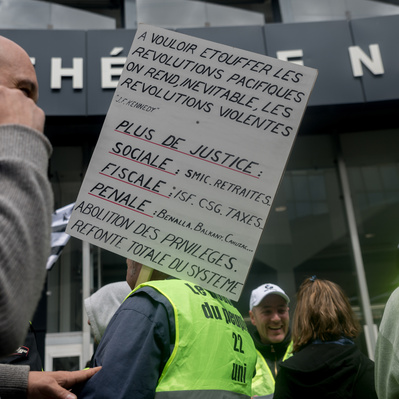 THÉ
EN
A VOULOIR ETOUFFER LES
REVOLUTIONS PACIFIQUES
ON REND, INEVITABLE, LES
REVOLUTIONS VIOLENTES
"J.F. KENNEDY"
PLUS DE JUSTICE:
SOCIALE: SMIC, RETRAITES.
FISCALE: ISF. CSG. TAXES.
PENALE: BENALLA, BALKANY, CAHUZAC...
ABOLITION DES PRIVILEGES.
REFONTE TOTALE DU SYSTEME
du peuple
22
uni